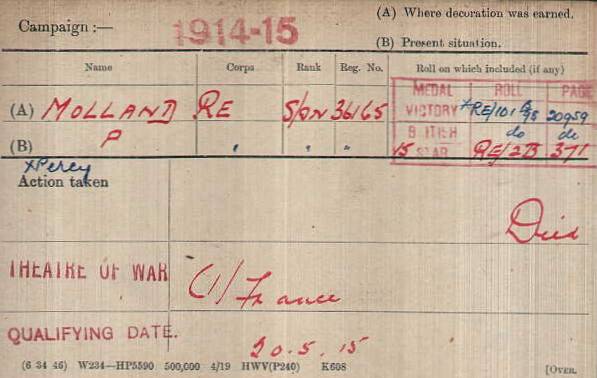 (A) Where decoration was earned.
Campaign :— 1914-15
(B) Present situation.
Name Corps Rank Reg. No. Roll on which included (if any)
MEDAL ROLL PAGE
(A) MOLLAND RE S/pr 36165 VICTORY *RE/101 B95 20959
(B) P " " " BRITISH do do
15 STAR RE/2B 371
*Percy
Action taken
Died
THEATRE OF WAR (1) France
QUALIFYING DATE. 20.5.15
(6 34 46) W234—HP5590 500,000 4/19 HWV(P240) K608 [OVER.